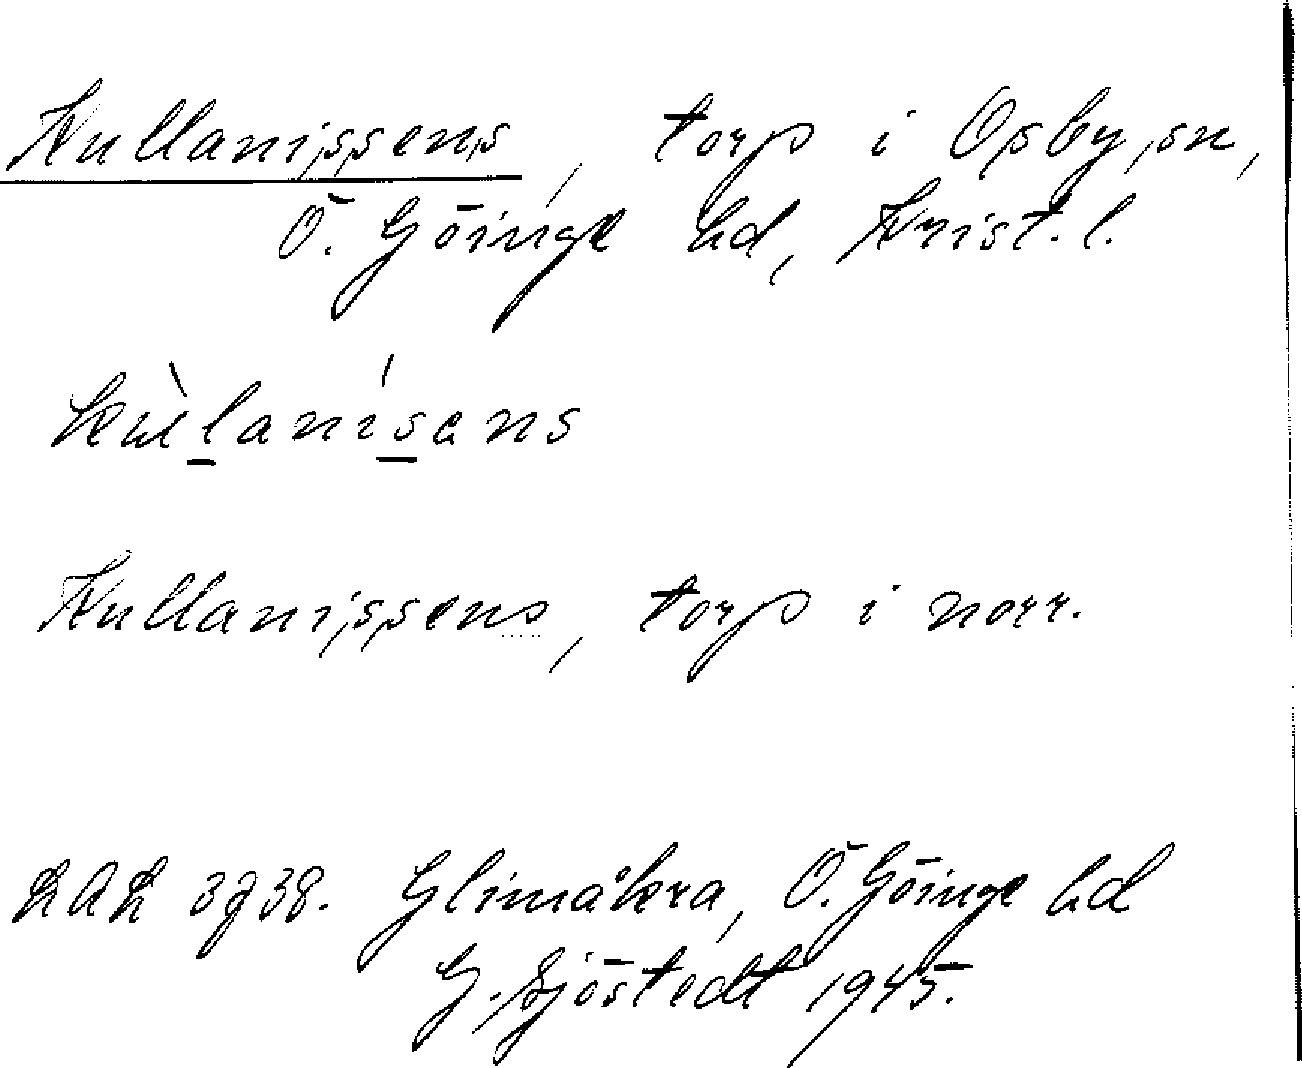 Kullanissens, torp i Osby sn,
Ö. Göinge hd, Krist. l.
kùlanísans
Kullanissens, torp i norr.
LAL 3738. Glimåkra, Ö. Göinge hd
G. Sjöstedt 1945.